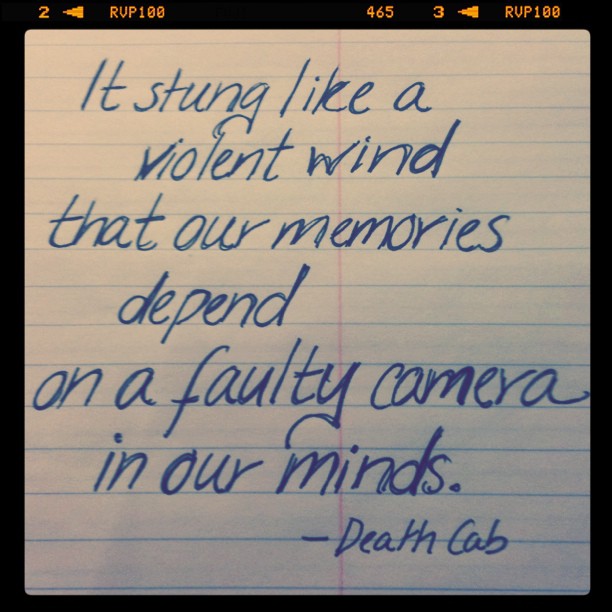 2 RVP100 465 3 RVP100
It stung like a
violent wind
that our memories
depend
on a faulty camera
in our minds.
- Death Cab